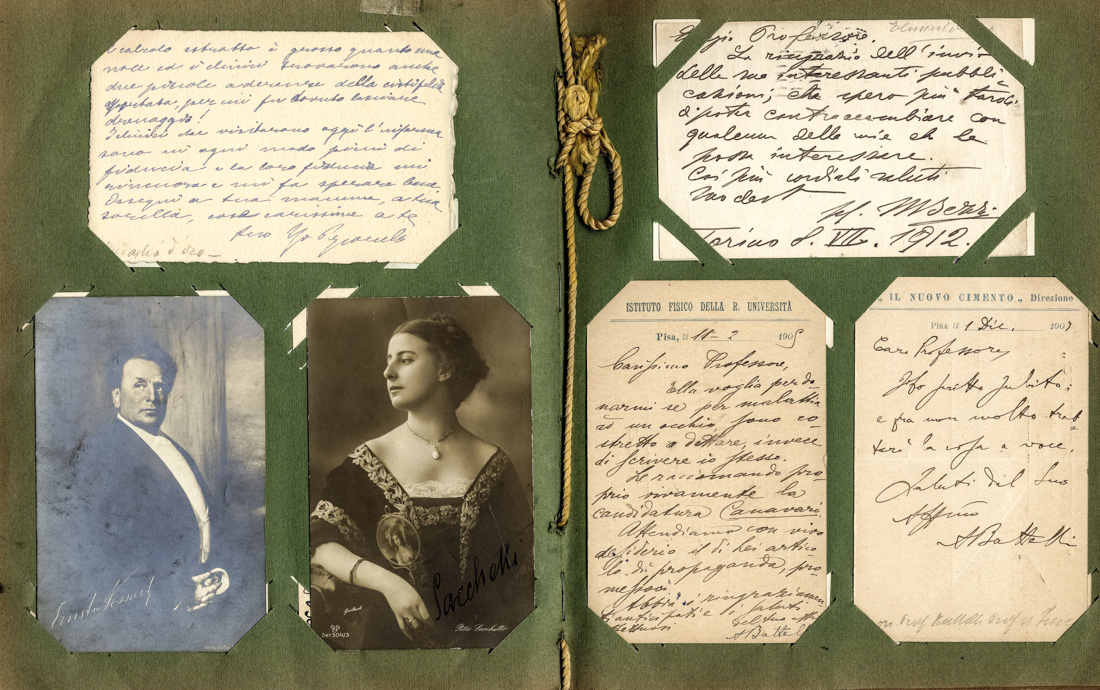 calcolo estratto è grosso quanto una
noce ed i clinici trovarono anche
due piccole aderenze della cistifellea
per cui fu dovuto lasciare
drenaggio!
I clinici che visitarono oggi l'inferma
sono in ogni modo pieni di
fiducia e la loro fiducia mi
rinnova e mi fa sperare bene.
Ossequi a tua mamma, a tua
sorella, cose carissime a te
tuo
Egregio Professore.
La ringrazio dell'invio
delle sue interessanti pubbli
cazioni, che spero più tardi
di poter contraccambiare con
qualcuna delle mie che le
possa interessare.
Coi più cordiali saluti
suo devot
Torino 8. VII. 1912.
Ernst v Possart
Sacchetti
Gerlach
Rita Sacchetto
ISTITUTO FISICO DELLA R. UNIVERSITÀ
Pisa, li 18-2 1905
Carissimo Professore,
Ella voglia perdo
narmi se per malattia
ad un occhio sono co
stretto a dettare, invece
di scrivere io stesso.
Le raccomando pro
prio vivamente la
candidatura Canavari.
Attendiamo con vivo
desiderio il di lei artico
lo di propaganda, pro
messoci.
Abbia i ringraziamen
ti anticipati e i saluti
affettuosi. del suo aff
A Battelli
„ IL NUOVO CIMENTO „ Direzione
PISA li 1 Dic. 1907
Caro Professore,
Ho scritto subito;
e fra non molto trat
terò la cosa a voce.
Saluti dal Suo
Affmo
A Battelli